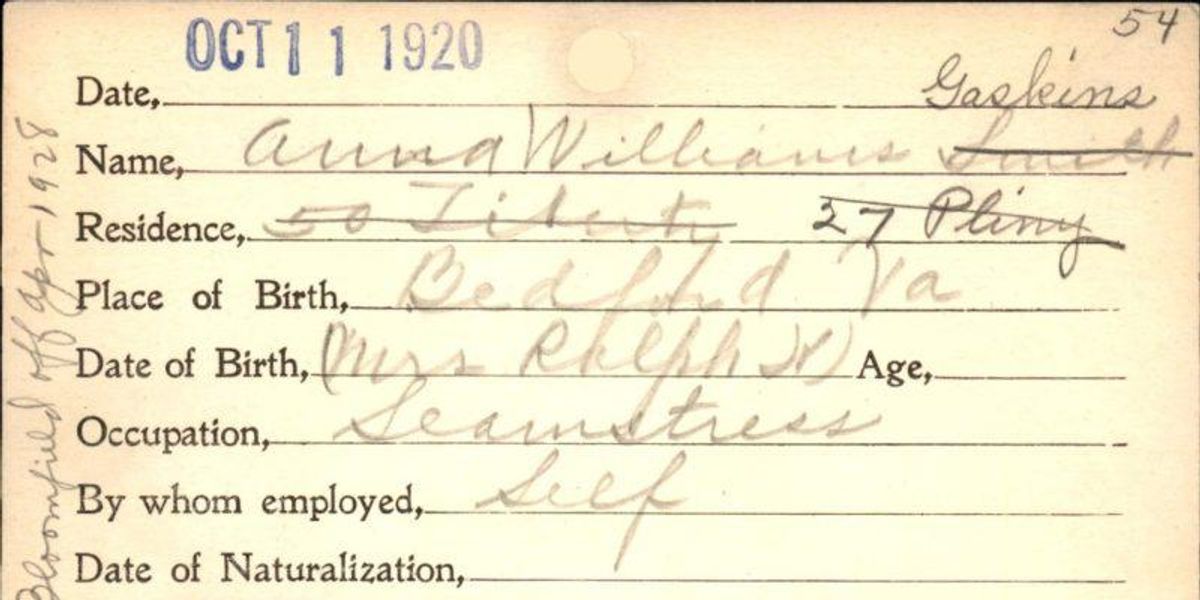 54
OCT 11 1920
Date, Gaskins
Name, Anna Williams Smith
Residence, 50 Liberty 27 Pliny
Place of Birth, Bedford Va
Date of Birth, (Mrs Ralph W) Age,
Occupation, Seamstress
By whom employed, Self
Date of Naturalization,
Bloomfield off Apr 1928